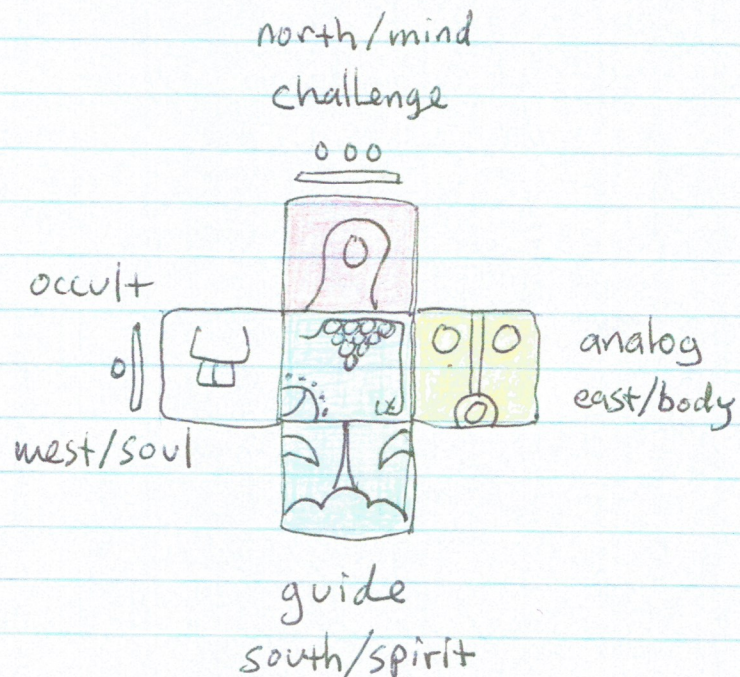 north/mind
challenge
occult
mest/soul
analog
east/body
guide
south/spirit